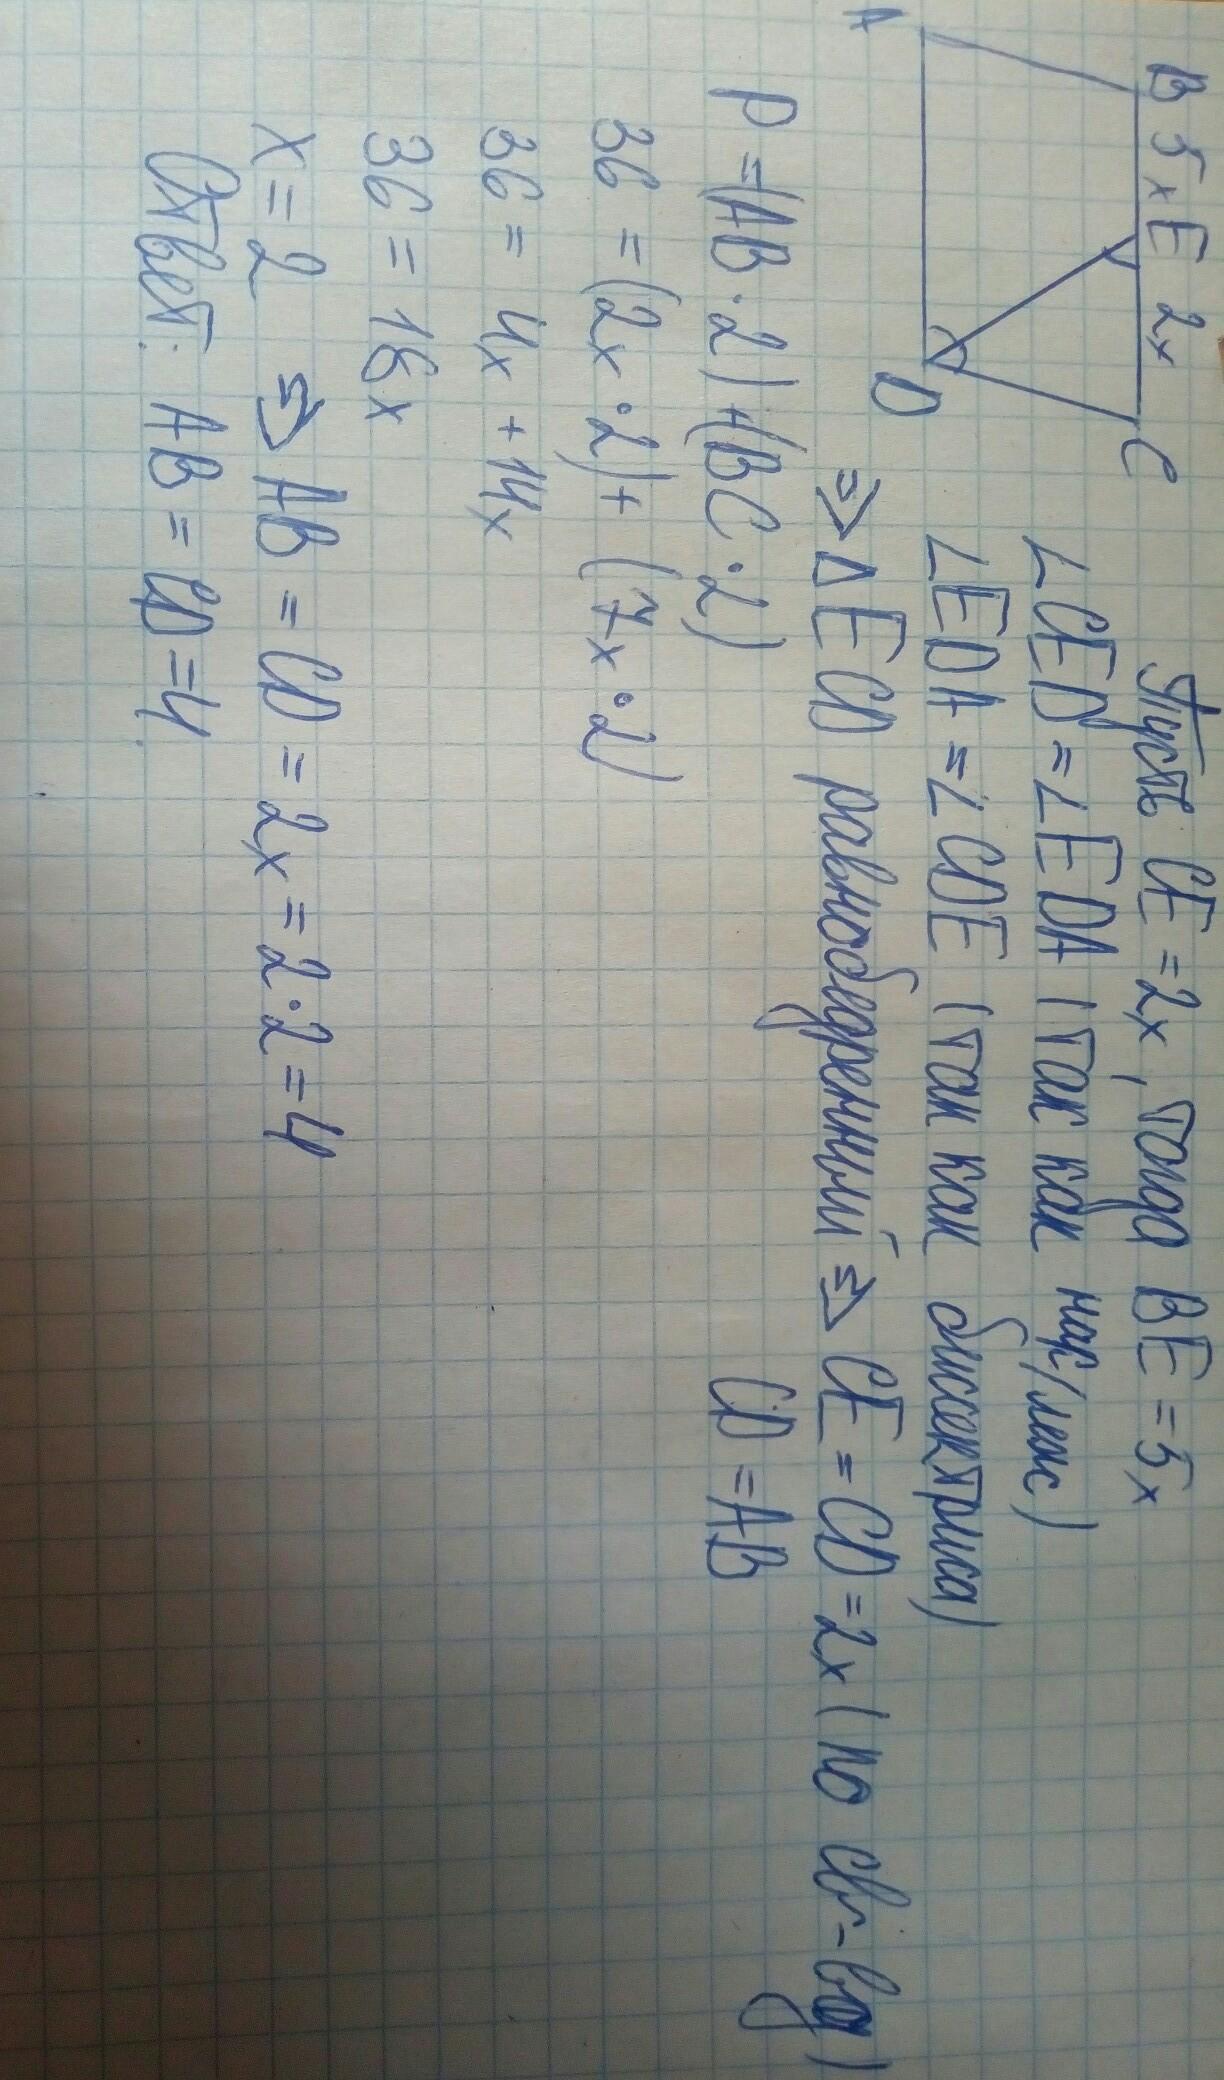 B 5x E 2x C
A D
Пусть CE = 2x, тогда BE = 5x
∠CED = ∠EDA (так как нар/леж)
∠EDA = ∠CDE (так как биссектриса)
⇒ Δ ECD равнобедренный ⇒ CE = CD = 2x (по св-ву)
CD = AB
P = (AB · 2) + (BC · 2)
36 = (2x · 2) + (7x · 2)
36 = 4x + 14x
36 = 18x
x = 2 ⇒ AB = CD = 2x = 2 · 2 = 4
Ответ: AB = CD = 4.